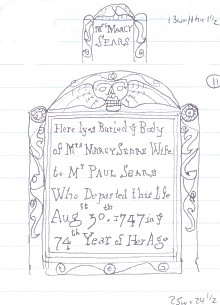 13w x 14 x 1 1/2
Mrs MARCY
SEARS
11
Here lyes Buried ye Body
of Mrs MARCY SEARS Wife
to Mr PAUL SEARS
Who Departed this Life
Augst 30th 1747 in ye
74th Year of Her Age
25w x 24 1/2